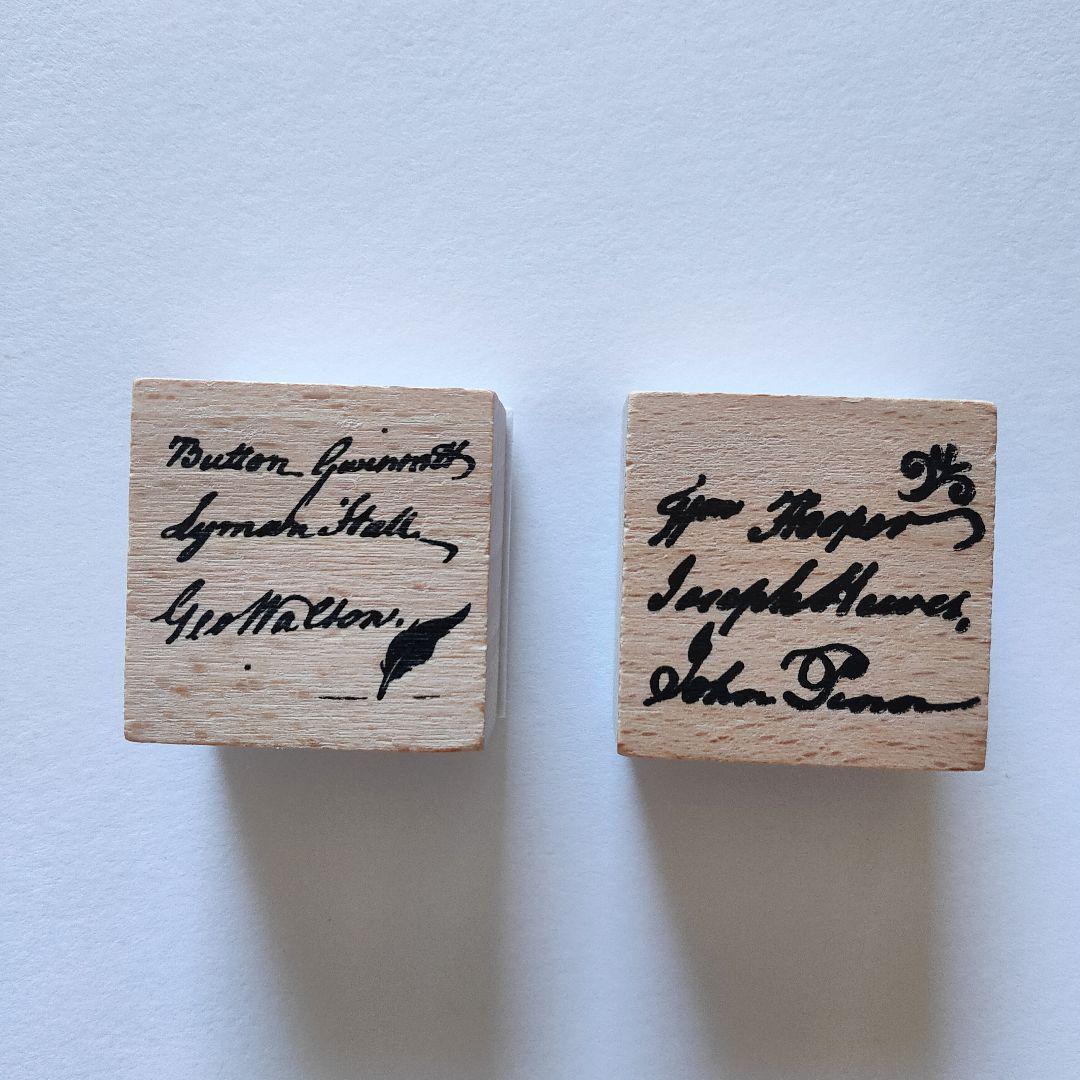 Button Gwinnett
Lyman Hall.
Geo Walton.
Wm Hooper
Joseph Hewes,
John Penn